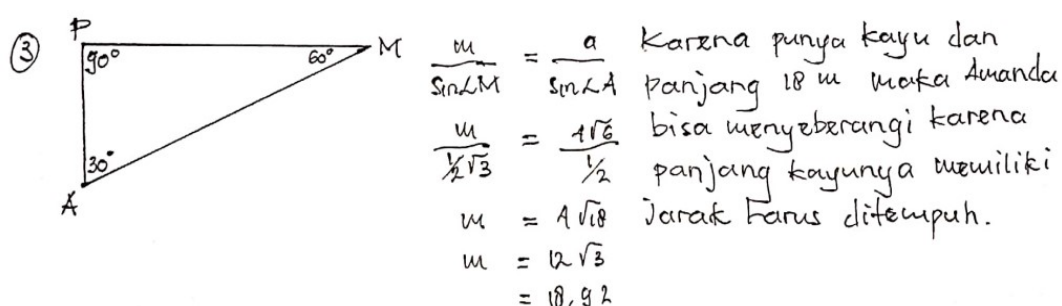 ③
P
90°
60°
M
30°
A
m/Sin∠M = a/Sin∠A
m/½√3 = 4√6/½
m = 4√18
m = 12√3
= 18,92
Karena punya kayu dan
panjang 18 m maka Amanda
bisa menyeberangi karena
panjang kayunya memiliki
Jarak harus ditempuh.